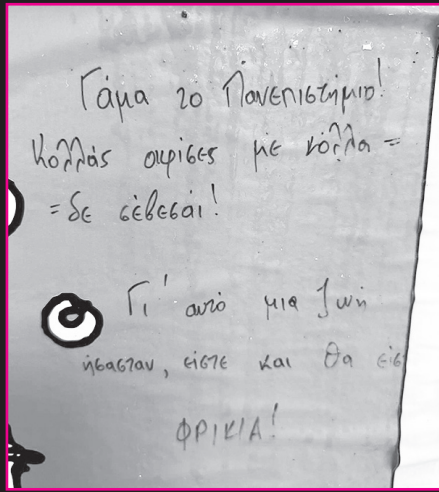 Γάμα το Πανεπιστήμιο!
Κολλάς αφίσες με κόλλα =
= δε σέβεσαι!
Γι' αυτό μια ζωή
ήσασταν, είστε και θα είσ
ΦΡΙΚΙΑ!